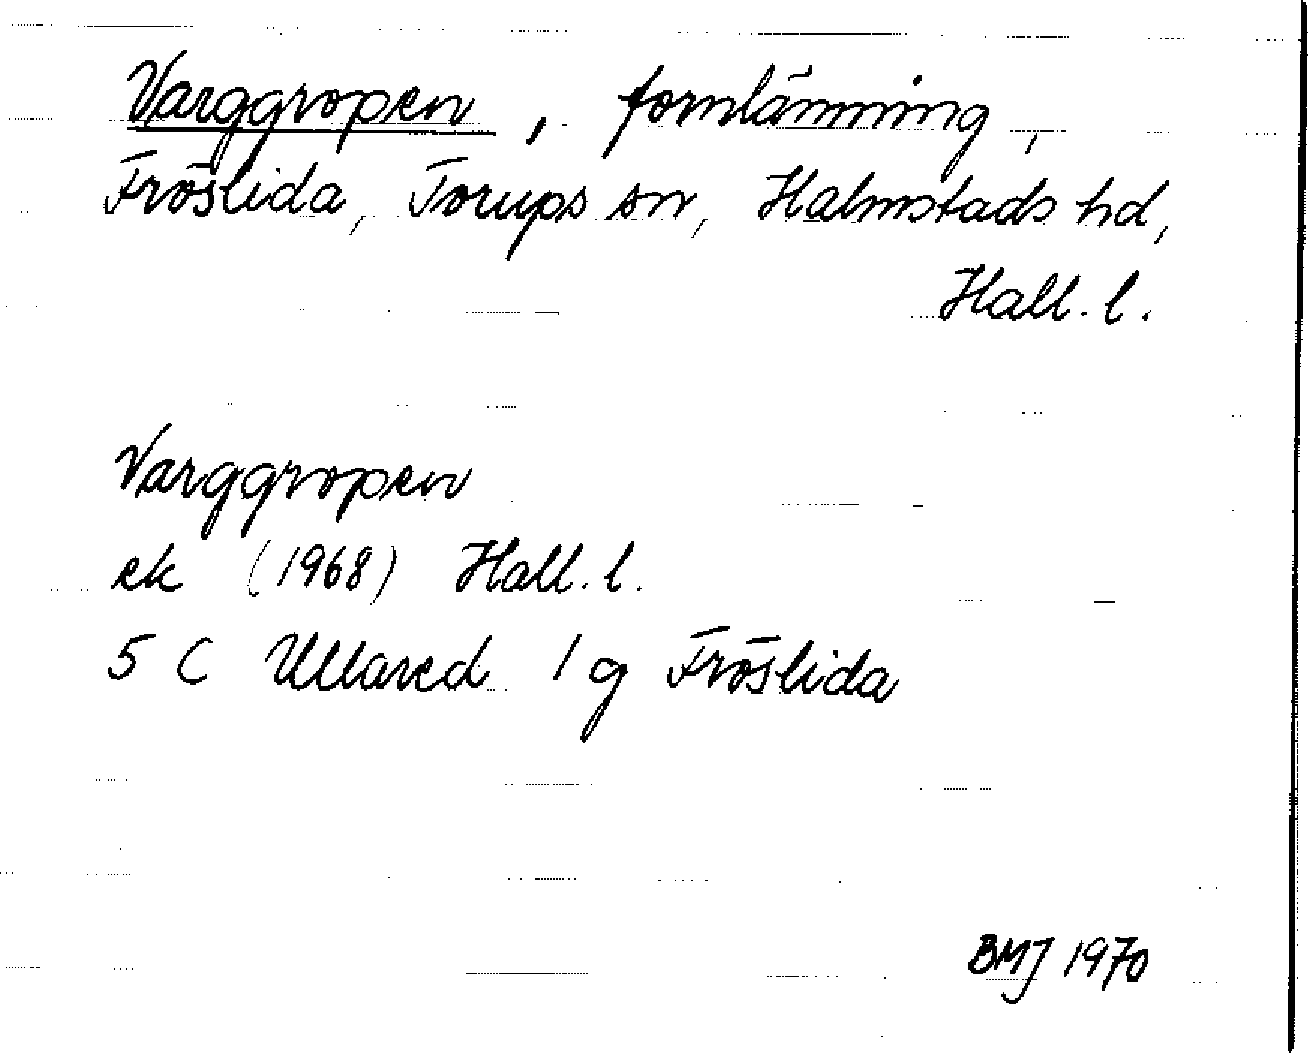 Varggropen, fornlämning,
Fröslida, Torups sn, Halmstads hd,
Hall. l.
Varggropen
ek (1968) Hall. l.
5 C Ullared 1 g Fröslida
BMJ 1970